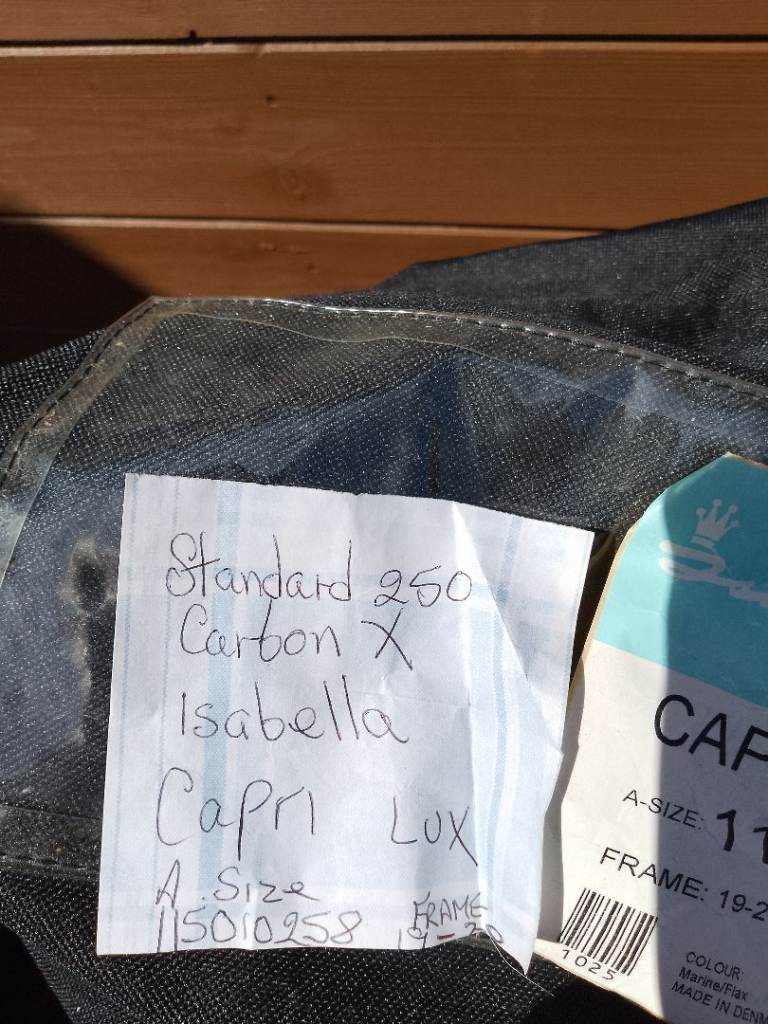 Standard 250
Carbon X
Isabella
Capri LUX
A. Size
115010258
FRAME
19-20
CAP
A-SIZE: 11
FRAME: 19-2
1025
COLOUR:
Marine/Flax
MADE IN DENM